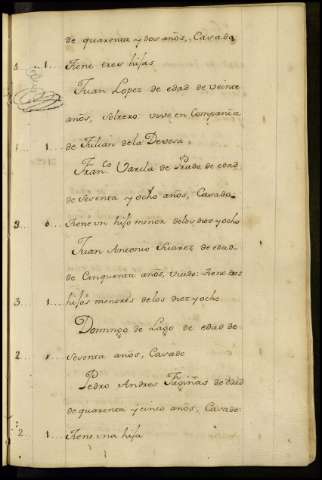 de quarenta y dos años, Casado
3 .. 1.. tiene tres hijas
Juan Lopez de edad de veinte
años, soltero vive en Compania
1 .. 1.. de Julian de la Devesa
Fran.co Varela de Prado de edad
de setenta y ocho años, Casado
3 .. 0.. tiene un hijo menor de los diez y ocho
Juan Antonio Suarez de edad
de Cinquenta años, viudo tiene tres
3 .. 1.. hijos menores de los diez y ocho
Domingo de Lago de edad de
2 .. 1.. setenta años, Casado
Pedro Andres Fagiñas de edad
de quarenta y cinco años, Casado
2 .. 1.. tiene una hija